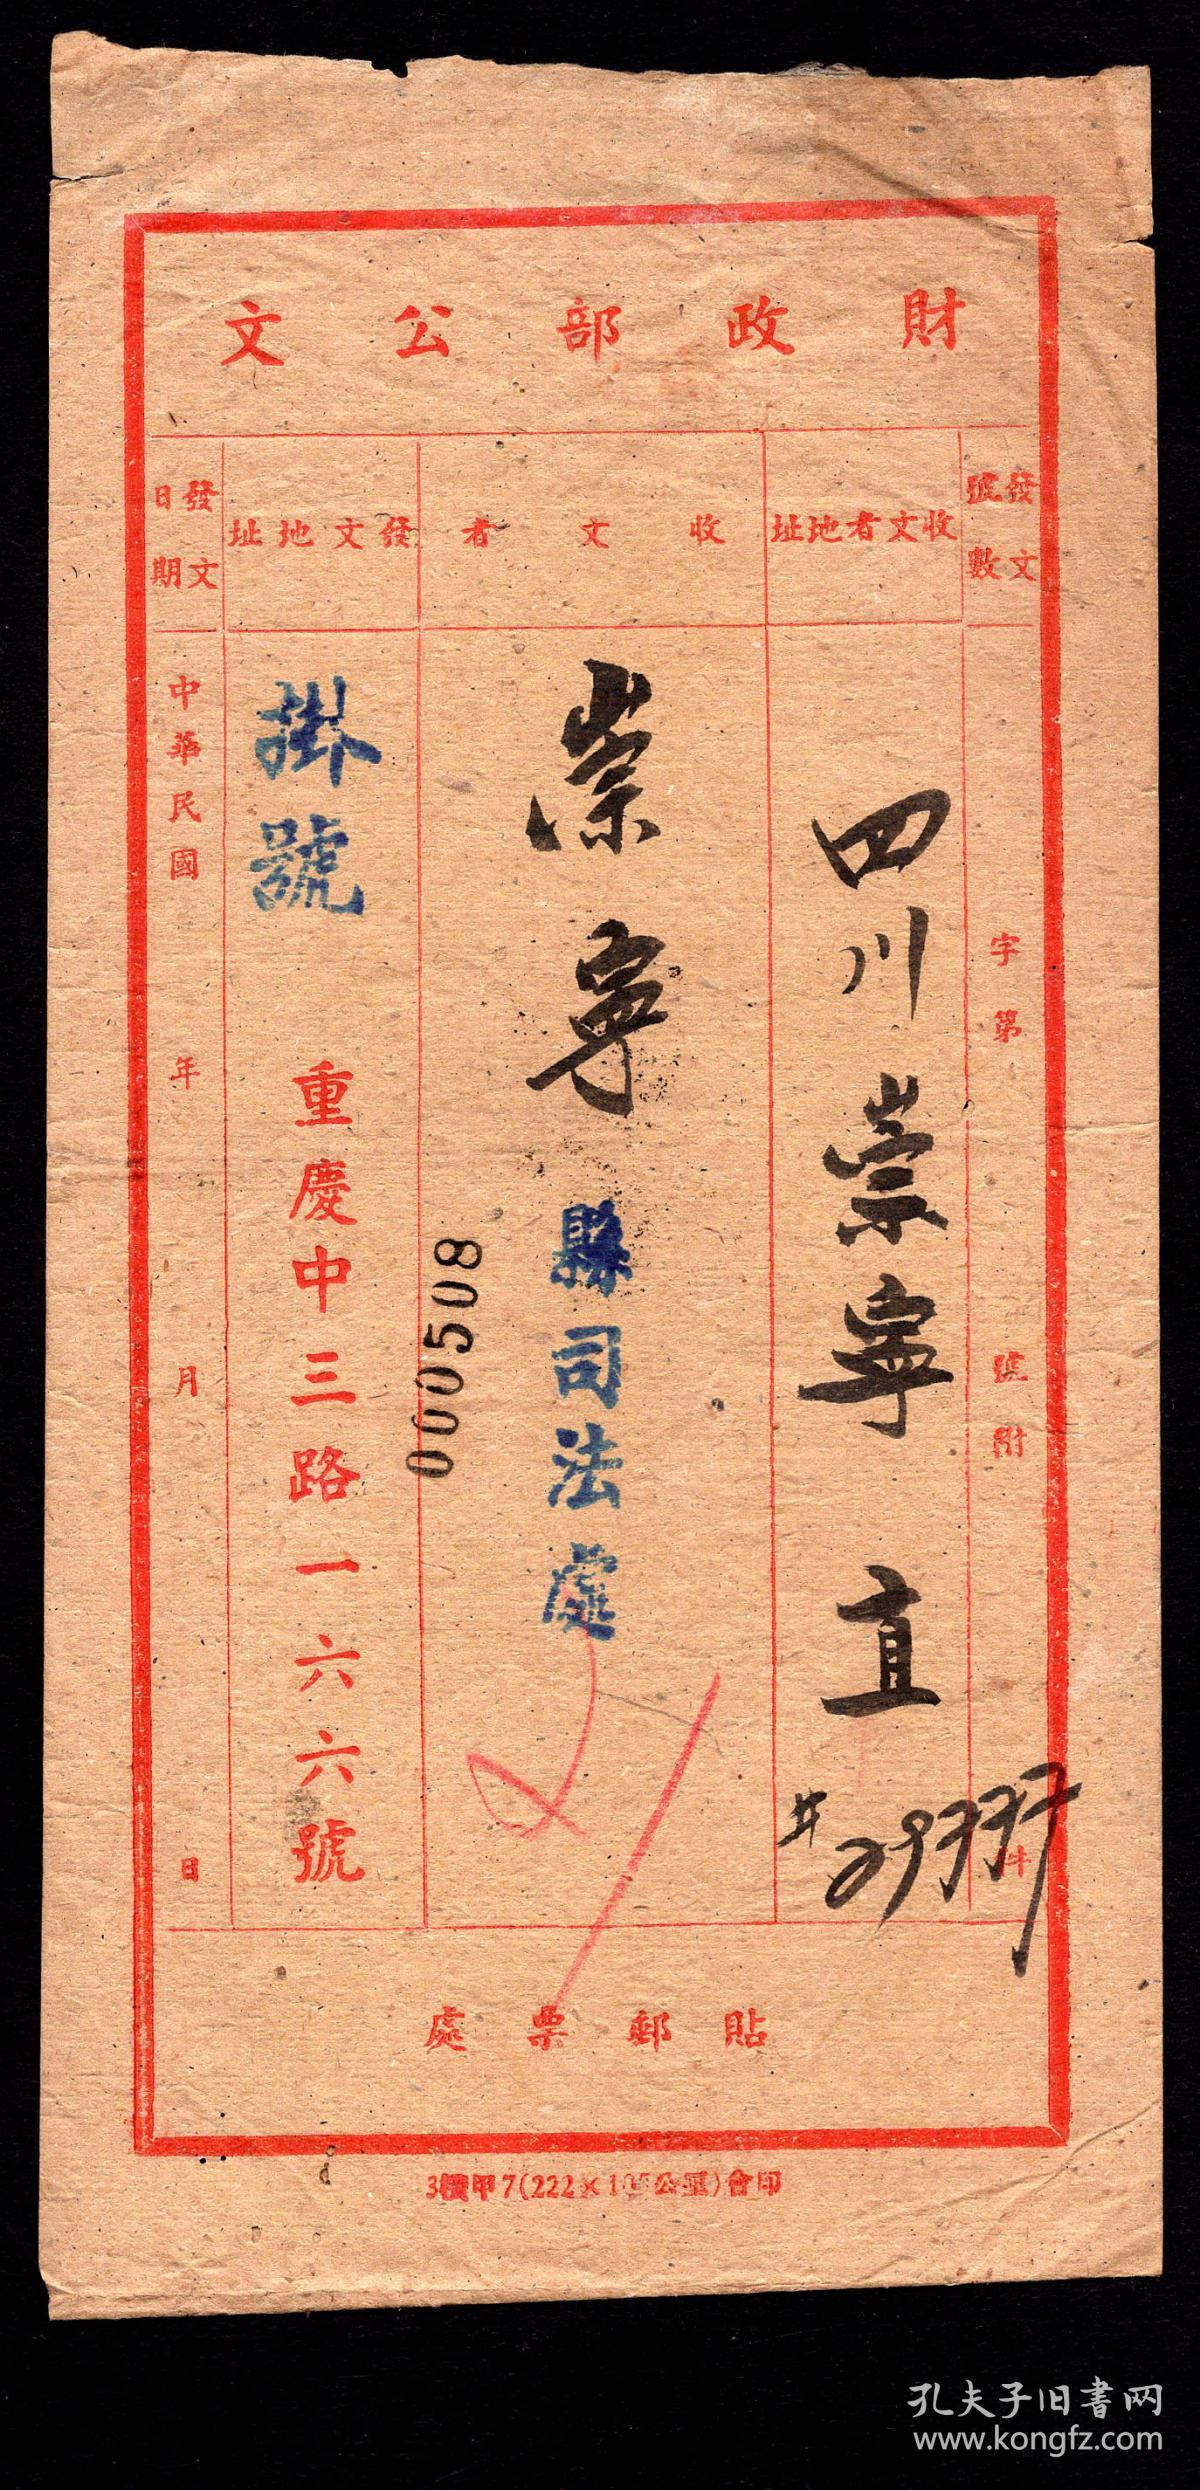 財政部公文
發文號數
字第 號附 件
收文者地址
四川崇寧 直
#29777
收文者
崇寧縣司法處
000508
發文地址
掛號
重慶中三路一六六號
發文日期
中華民國 年 月 日
貼郵票處
會印
孔夫子旧書网
www.kongfz.com